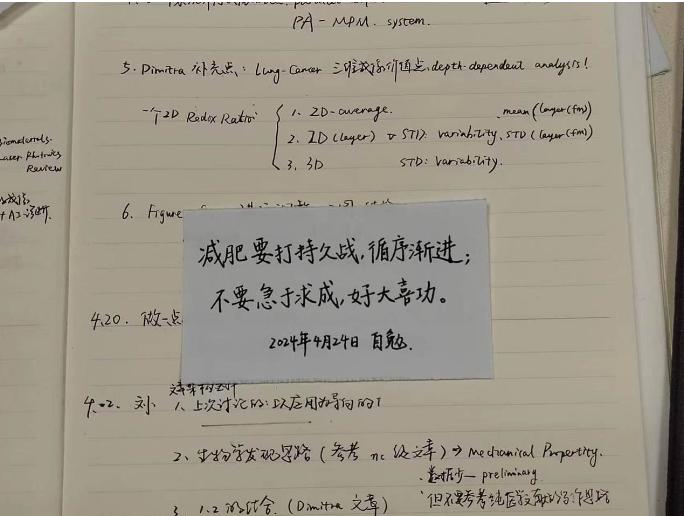 PA-MPM. system.
5. Dimitra 补充点: Lung-Cancer 三维成像价值点, depth-dependent analysis!
一个2D Redox Ratio:
1. 2D-average. mean(layer(fm)
2. 2D(layer) STD: variability, STD(layer(fm))
3. 3D STD: variability.
Laser Photonics
Review
6. Figure
减肥要打持久战,循序渐进;
不要急于求成,好大喜功。
2024年4月24日 自勉.
4.20. 做一点
刘 1、上次讨论的: 以应用为导向的
2、生物学发现思路(参考 nc 级文章) → Mechanical Propertity.
数据少— preliminary
3 1.2 的结合. (Dimitra 文章)